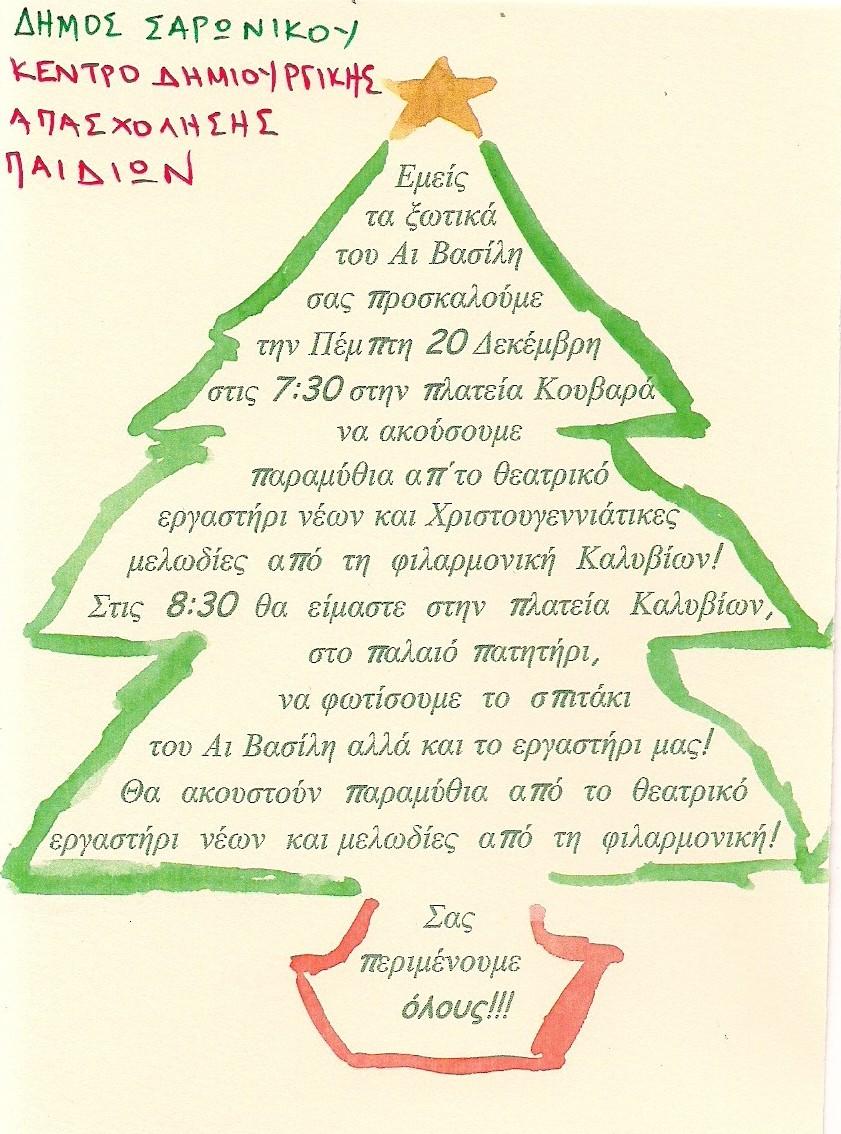 ΔΗΜΟΣ ΣΑΡΩΝΙΚΟΥ
ΚΕΝΤΡΟ ΔΗΜΙΟΥΡΓΙΚΗΣ
ΑΠΑΣΧΟΛΗΣΗΣ
ΠΑΙΔΙΩΝ
Εμείς
τα ξωτικά
του Αι Βασίλη
σας προσκαλούμε
την Πέμπτη 20 Δεκέμβρη
στις 7:30 στην πλατεία Κουβαρά
να ακούσουμε
παραμύθια απ΄το θεατρικό
εργαστήρι νέων και Χριστουγεννιάτικες
μελωδίες από τη φιλαρμονική Καλυβίων!
Στις 8:30 θα είμαστε στην πλατεία Καλυβίων,
στο παλαιό πατητήρι,
να φωτίσουμε το σπιτάκι
του Αι Βασίλη αλλά και το εργαστήρι μας!
Θα ακουστούν παραμύθια από το θεατρικό
εργαστήρι νέων και μελωδίες από τη φιλαρμονική!
Σας
περιμένουμε
όλους!!!